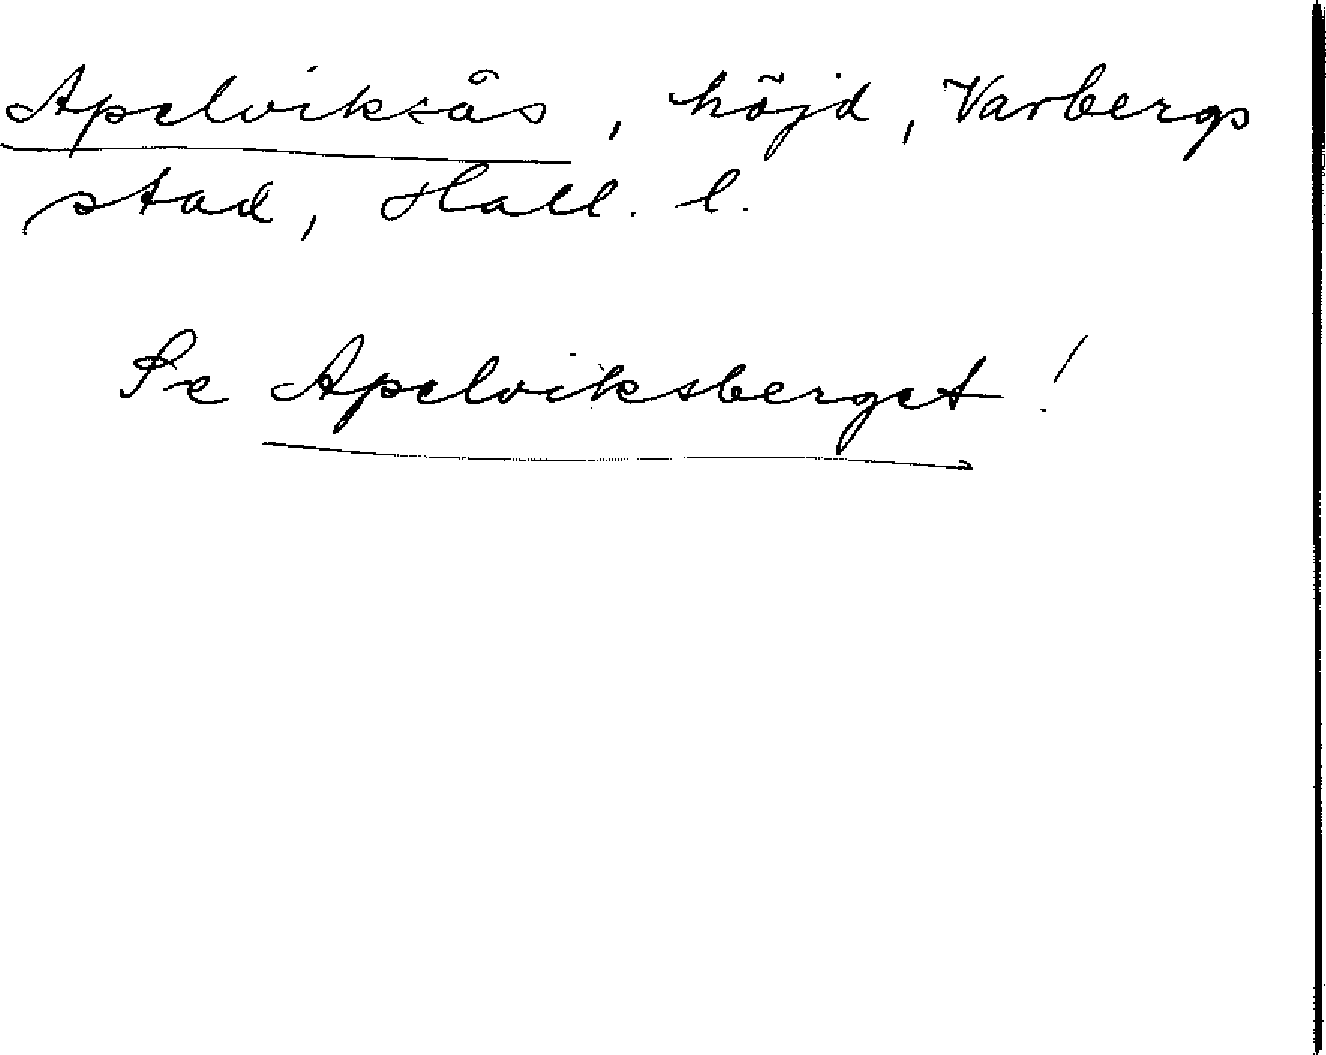 Apelviksås, höjd, Varbergs
stad, Hall. l.
Se Apelviksberget!